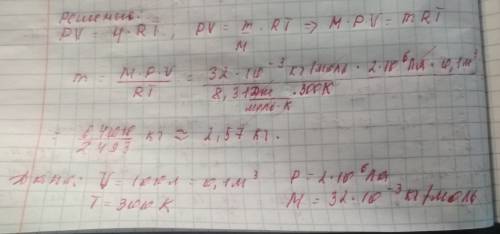 Решение:
PV = ν·RT, PV = m/M · RT => M·P·V = mRT
m = M·P·V / RT = 32·10⁻³ кг/моль · 2·10⁶ Па · 0,1 м³ / 8,31 Дж/моль·К · 300К
= 6400 / 2493 кг ≈ 2,57 кг.
Дано: V = 100л = 0,1 м³ P = 2·10⁶ Па
T = 300 К M = 32·10⁻³ кг/моль